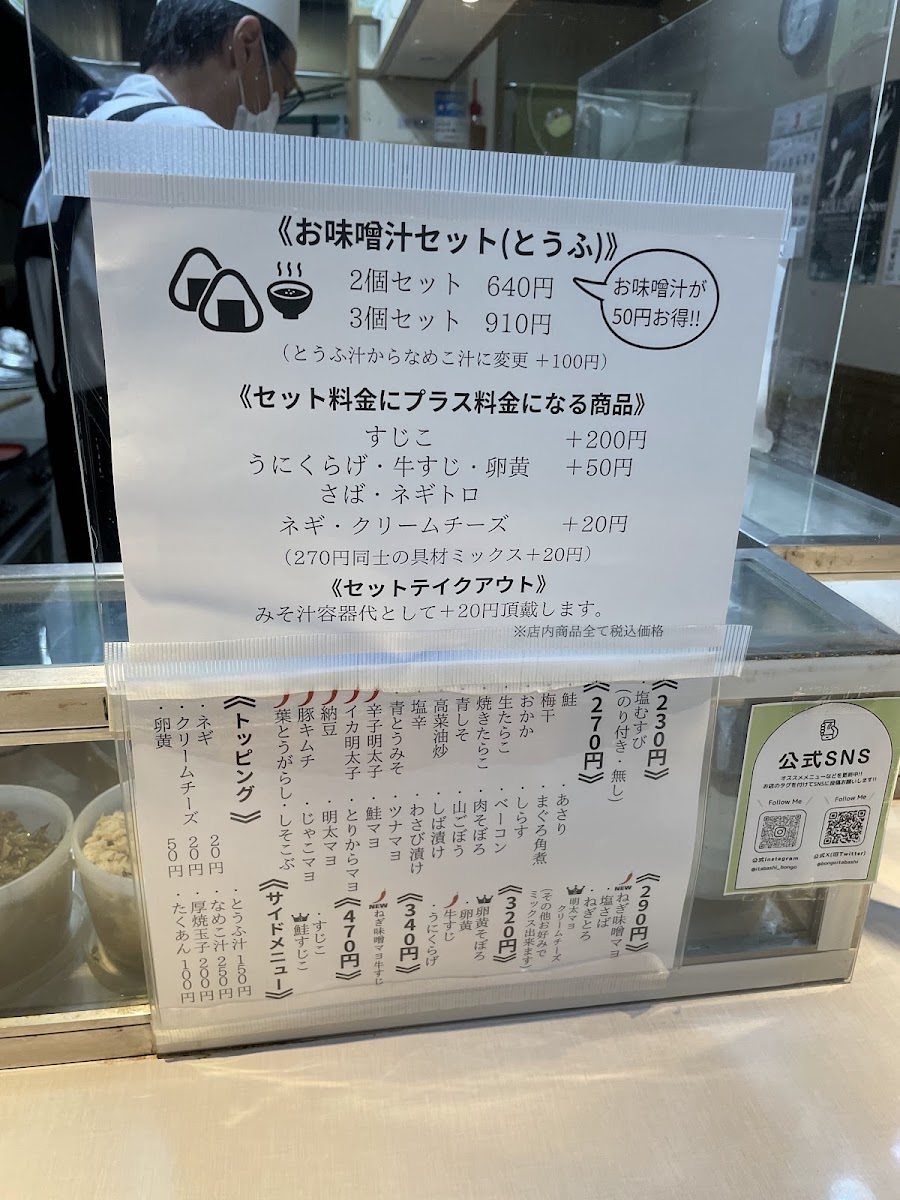 《お味噌汁セット(とうふ)》
2個セット 640円
3個セット 910円
お味噌汁が
50円お得!!
(とうふ汁からなめこ汁に変更 +100円)
《セット料金にプラス料金になる商品》
すじこ +200円
うにくらげ・牛すじ・卵黄 +50円
さば・ネギトロ
ネギ・クリームチーズ +20円
(270円同士の具材ミックス+20円)
《セットテイクアウト》
みそ汁容器代として+20円頂戴します。
※店内商品全て税込価格
《230円》
・塩むすび
(のり付き・無し)
《270円》
・鮭
・梅干
・おかか
・生たらこ
・焼きたらこ
・青しそ
・高菜油炒
・塩辛
・青とうみそ
・辛子明太子
・イカ明太子
・納豆
・豚キムチ
・葉とうがらし
・あさり
・まぐろ角煮
・しらす
・ベーコン
・肉そぼろ
・山ごぼう
・しば漬け
・わさび漬け
・ツナマヨ
・鮭マヨ
・とりからマヨ
・明太マヨ
・じゃこマヨ
・しそこぶ
《290円》
NEW
ねぎ味噌マヨ
・塩さば
・ねぎとろ
明太マヨ
クリームチーズ
(その他お好みで
ミックス出来ます)
《320円》
卵黄そぼろ
・卵黄
・牛すじ
・うにくらげ
《340円》
NEW
ねぎ味噌マヨ牛すじ
《470円》
・すじこ
鮭すじこ
《トッピング》
・ネギ 20円
・クリームチーズ 20円
・卵黄 50円
《サイドメニュー》
・とうふ汁 150円
・なめこ汁 250円
・厚焼玉子 200円
・たくあん 100円
公式SNS
オススメメニューなどを更新中!!
お店のタグを付けてSNSに投稿お願いします!!
Follow Me
Follow Me
公式Instagram
@itabashi_bongo
公式X(旧Twitter)
@bongoitabashi